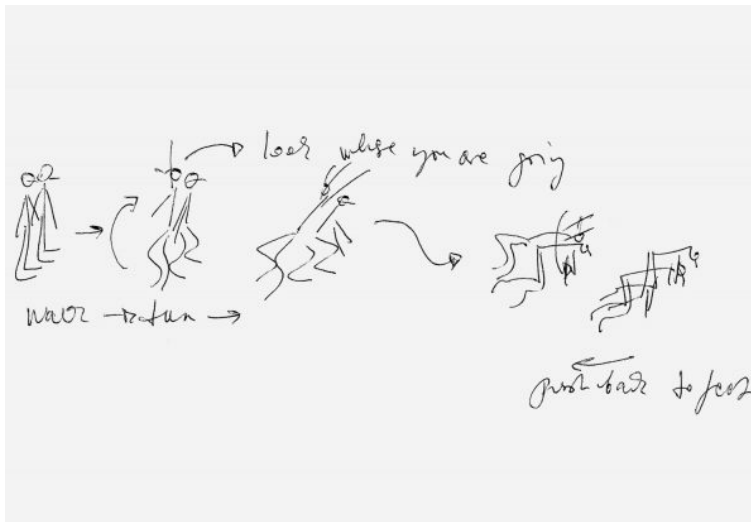 look where you are going
walk → turn →
push back to feet